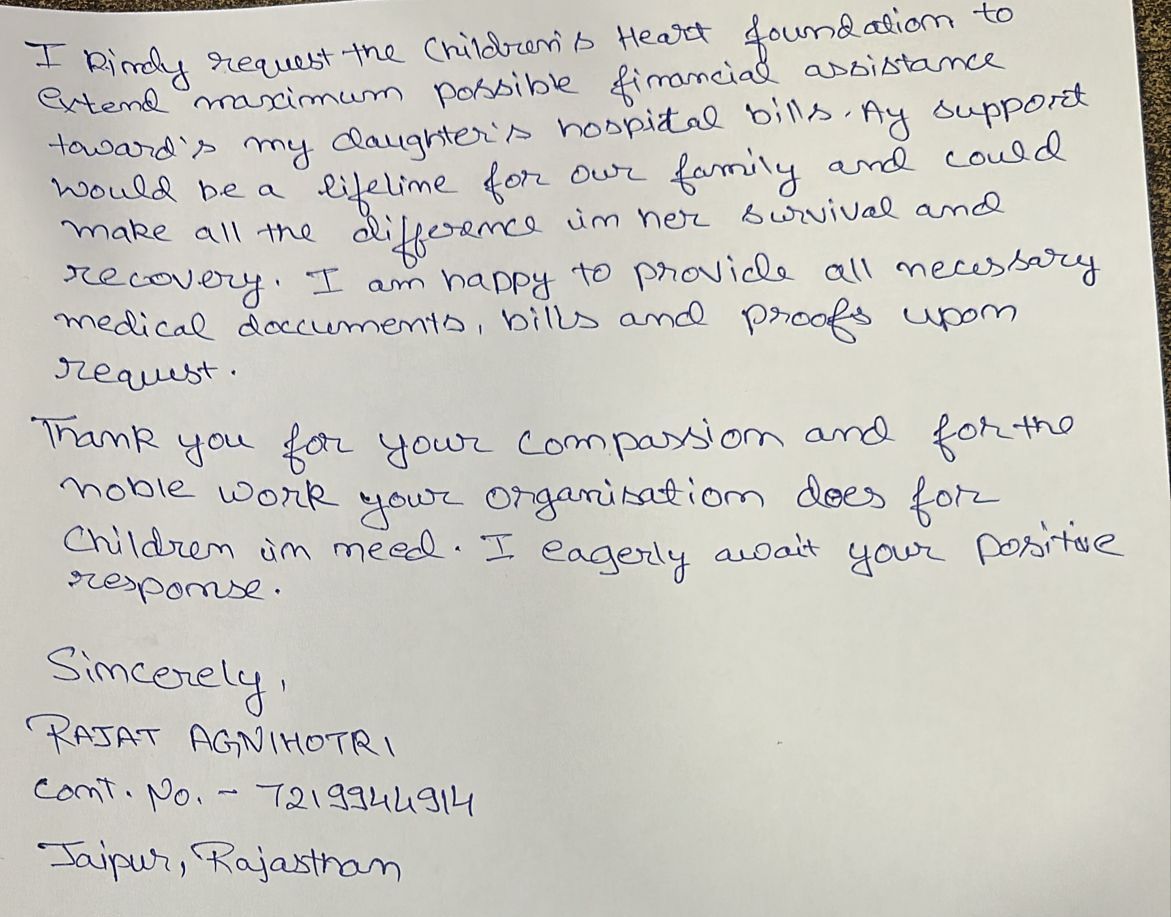 I Kindly request the Children's Heart foundation to
extend maximum possible financial assistance
toward's my daughter's hospital bills. Ay support
would be a lifeline for our family and could
make all the difference in her survival and
recovery. I am happy to provide all necessary
medical doccuments, bills and proofs upon
request.
Thank you for your compassion and for the
noble work your organisation does for
Children in need. I eagerly await your positive
response.
Sincerely,
RAJAT AGNIHOTRI
Cont. No. - 7219944914
Jaipur, Rajasthan